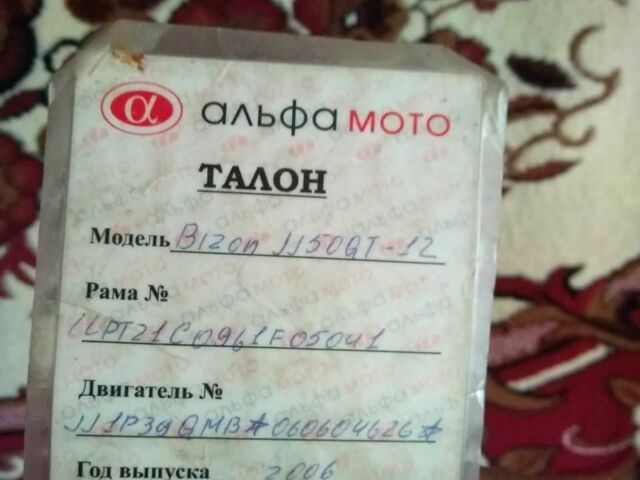 α альфа мото
ТАЛОН
Модель Bizon JJ50QT-12
Рама №
LLPT21C0961F05041
Двигатель №
JJ1P39QMB*060604626*
Год выпуска 2006